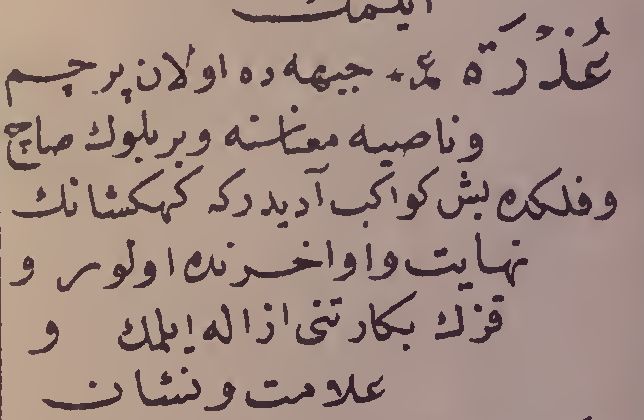 ایلمك
عُذْرَة ع۰ جبهه ده اولان پرچم
وناصیه معناسنه وبربلوك صاچ
وفلكده بش كواكب آدیدركه كهكشانك
نهایت واواخرنده اولور و
قزك بكارتنی ازاله ایلمك و
علامت ونشان